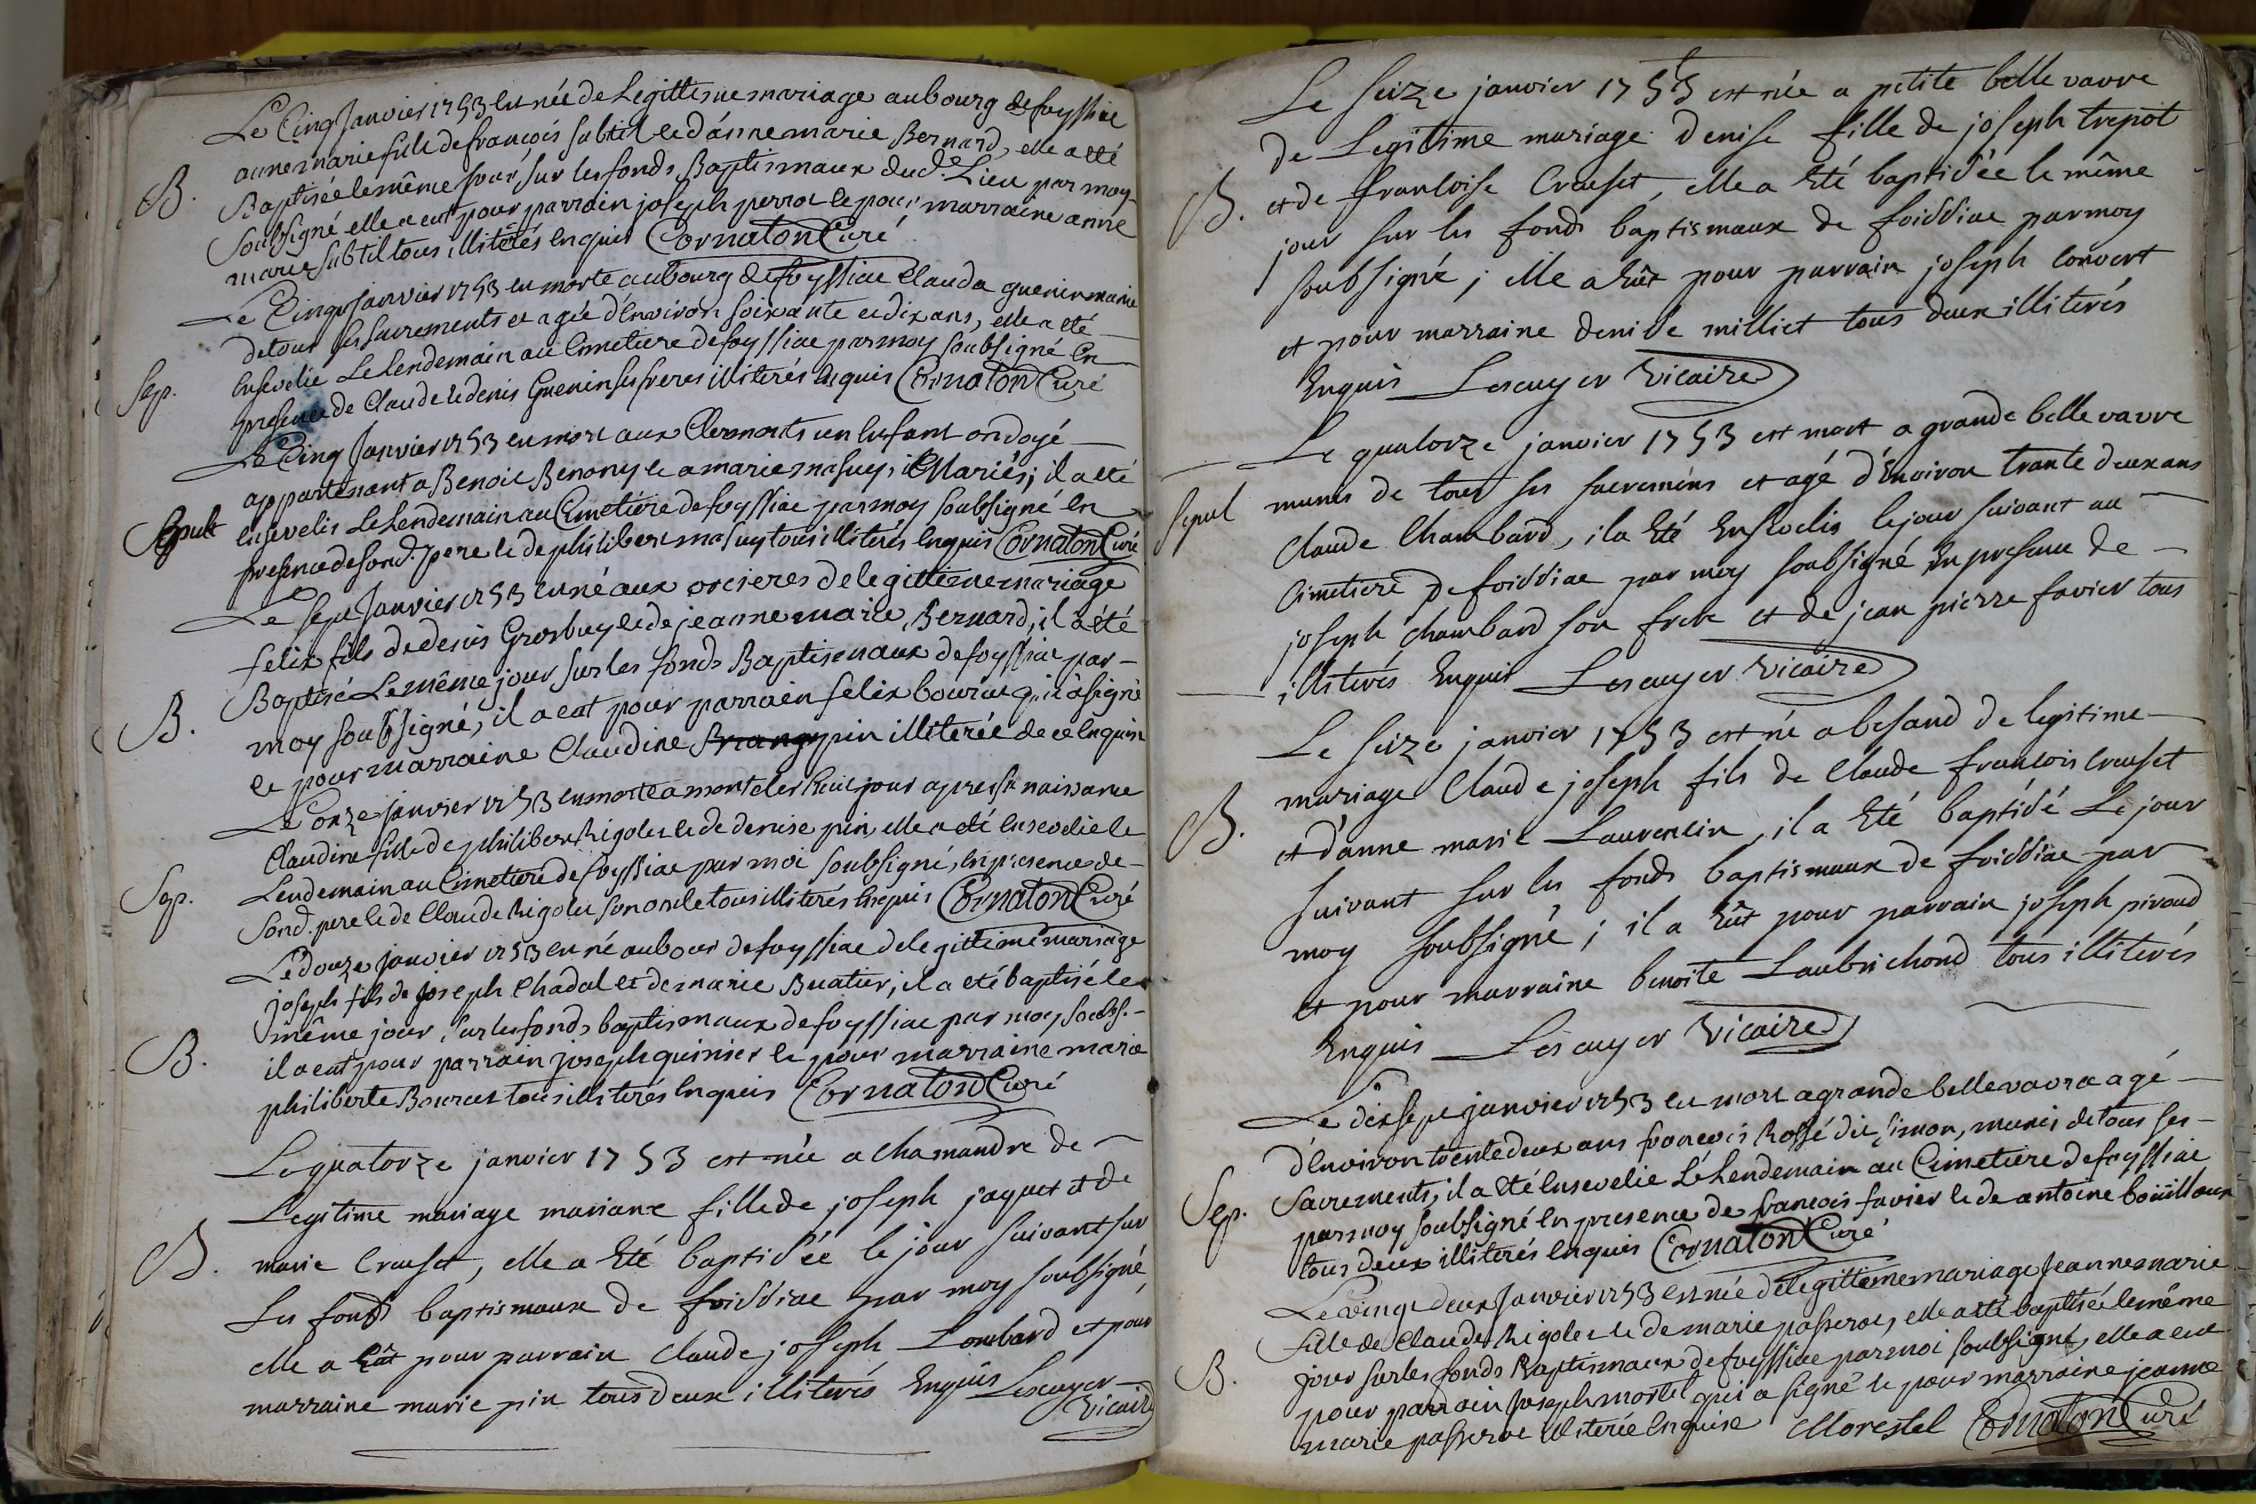 Le Cinq Janvier 1753 est née de Legittime mariage au bourg de foyssiac
anne marie fille de françois subtil et d'anne marie Bernard, elle a eté
B. Baptisée le même jour sur les fonds Baptismaux dud. Lieu par moy
Soubsigné elle a eut pour parrain joseph perrot et pour marraine anne
marie subtil tous illiterés enquis Cornaton Curé
Le Cinq Janvier 1753 est morte au bourg de foyssiac Clauda guenin munie
de tous ses sacrements et agée d'environ soixante et dix ans, elle a eté
Sep. Ensevelie Le Lendemain au Cimetiere de foyssiac par moy soubsigné En
presence de Claude et denis Guenin ses freres illiterés enquis Cornaton Curé
Le Cinq Janvier 1753 est mort aux Clermonts un Enfant ondoyé
appartenant a Benoit Benony et a marie masuy, Mariés; il a eté
Sepult ensevelis Le Lendemain au Cimetiere de foyssiac par moy soubsigné En
presence de sond. pere et de philibert masuy tous illiterés enquis Cornaton Curé
Le sept Janvier 1753 est né aux orcieres de legittime mariage
felix fils de denis Grosbuy et de jeanne marie Bernard, il a été
Baptisé Le même jour sur les fonds Baptismaux de foyssiac par
B. moy soubsigné, il a eut pour parrain felix bourcet qui a signé
et pour marraine Claudine pin illiterée de ce enquise
Le onze janvier 1753 est morte a montcler huit jour apres sa naissance
Claudine fille de philibert Rigolet et de denise pin elle a eté ensevelie le
Sep. Lendemain au Cimetiere de foyssiac par moi soubsigné, en presence de
Sond. pere et de Claude Rigolet son oncle tous illiterés enquis Cornaton Curé
Le douze janvier 1753 est né au bour de foyssiac de legittime mariage
joseph fils de joseph Chadal et de marie Buatier, il a eté baptisé le
même jour, sur les fonds baptismaux de foyssiac par moy soubs.
B. il a eut pour parrain joseph guinier et pour marraine marie
philiberte Bourcet tous illiterés enquis Cornaton Curé
Le quatorze janvier 1753 est née a Chamandre de
Legitime mariage mariane fille de joseph jaquet et de
B. marie Creuset, elle a Eté baptisée le jour suivant sur
Les fonds baptismaux de foissiac par moy soubsigné,
elle a Eût pour parrain Claude joseph Lombard et pour
marraine marie pin tous deux illiterés Enquis Lescuyer
vicaire
Le seize janvier 1753 est née a petite belle vavre
de Legitime mariage denise fille de joseph trepot
B. et de françoise Creuset, elle a Eté baptisée le même
jour sur les fonds baptismaux de foissiac par moy
soubsigné; elle a Eût pour parrain joseph Convert
et pour marraine denise milliet tous deux illiterés
Enquis Lescuyer vicaire
Le quatorze janvier 1753 est mort a grande belle vavre
Sepul munis de tous ses sacremens et agé d'Environ trante deux ans
Claude Chambard, il a Eté Ensevelis le jour suivant au
Cimetiere de foissiac par moy soubsigné En presence de
joseph chambard son frere et de jean pierre favier tous
illiterés Enquis Lescuyer vicaire
Le seize janvier 1753 est né a besand de legitime
mariage Claude joseph fils de Claude francois Creuset
B. et d'anne marie Laurencin, il a Eté baptisé Le jour
suivant sur les fonds baptismaux de foissiac par
moy soubsigné; il a Eût pour parrain joseph piroud
et pour marraine benoite Laubrichond tous illiterés
Enquis Lescuyer vicaire
Le dix sept janvier 1753 est mort a grande belle vavre agé
d'Environ trente deux ans françois Rossé dit simon, munis de tous ses
Sep. Sacrements, il a eté Ensevelie Le Lendemain au Cimetiere de foyssiac
par moy soubsigné En presence de françois favier et de antoine boüilloux
tous deux illiterés enquis Cornaton Curé
Le vingt deux Janvier 1753 est née de legittime mariage Jeanne marie
fille de Claude Rigolet et de marie passerat, elle a eté baptisée le même
B. jour sur les fonds Baptismaux de foyssiac par moi soubsigné, elle a eut
pour parrain Joseph morestel qui a signé et pour marraine jeanne
marie passerat illiterée enquise Morestel Cornaton Curé